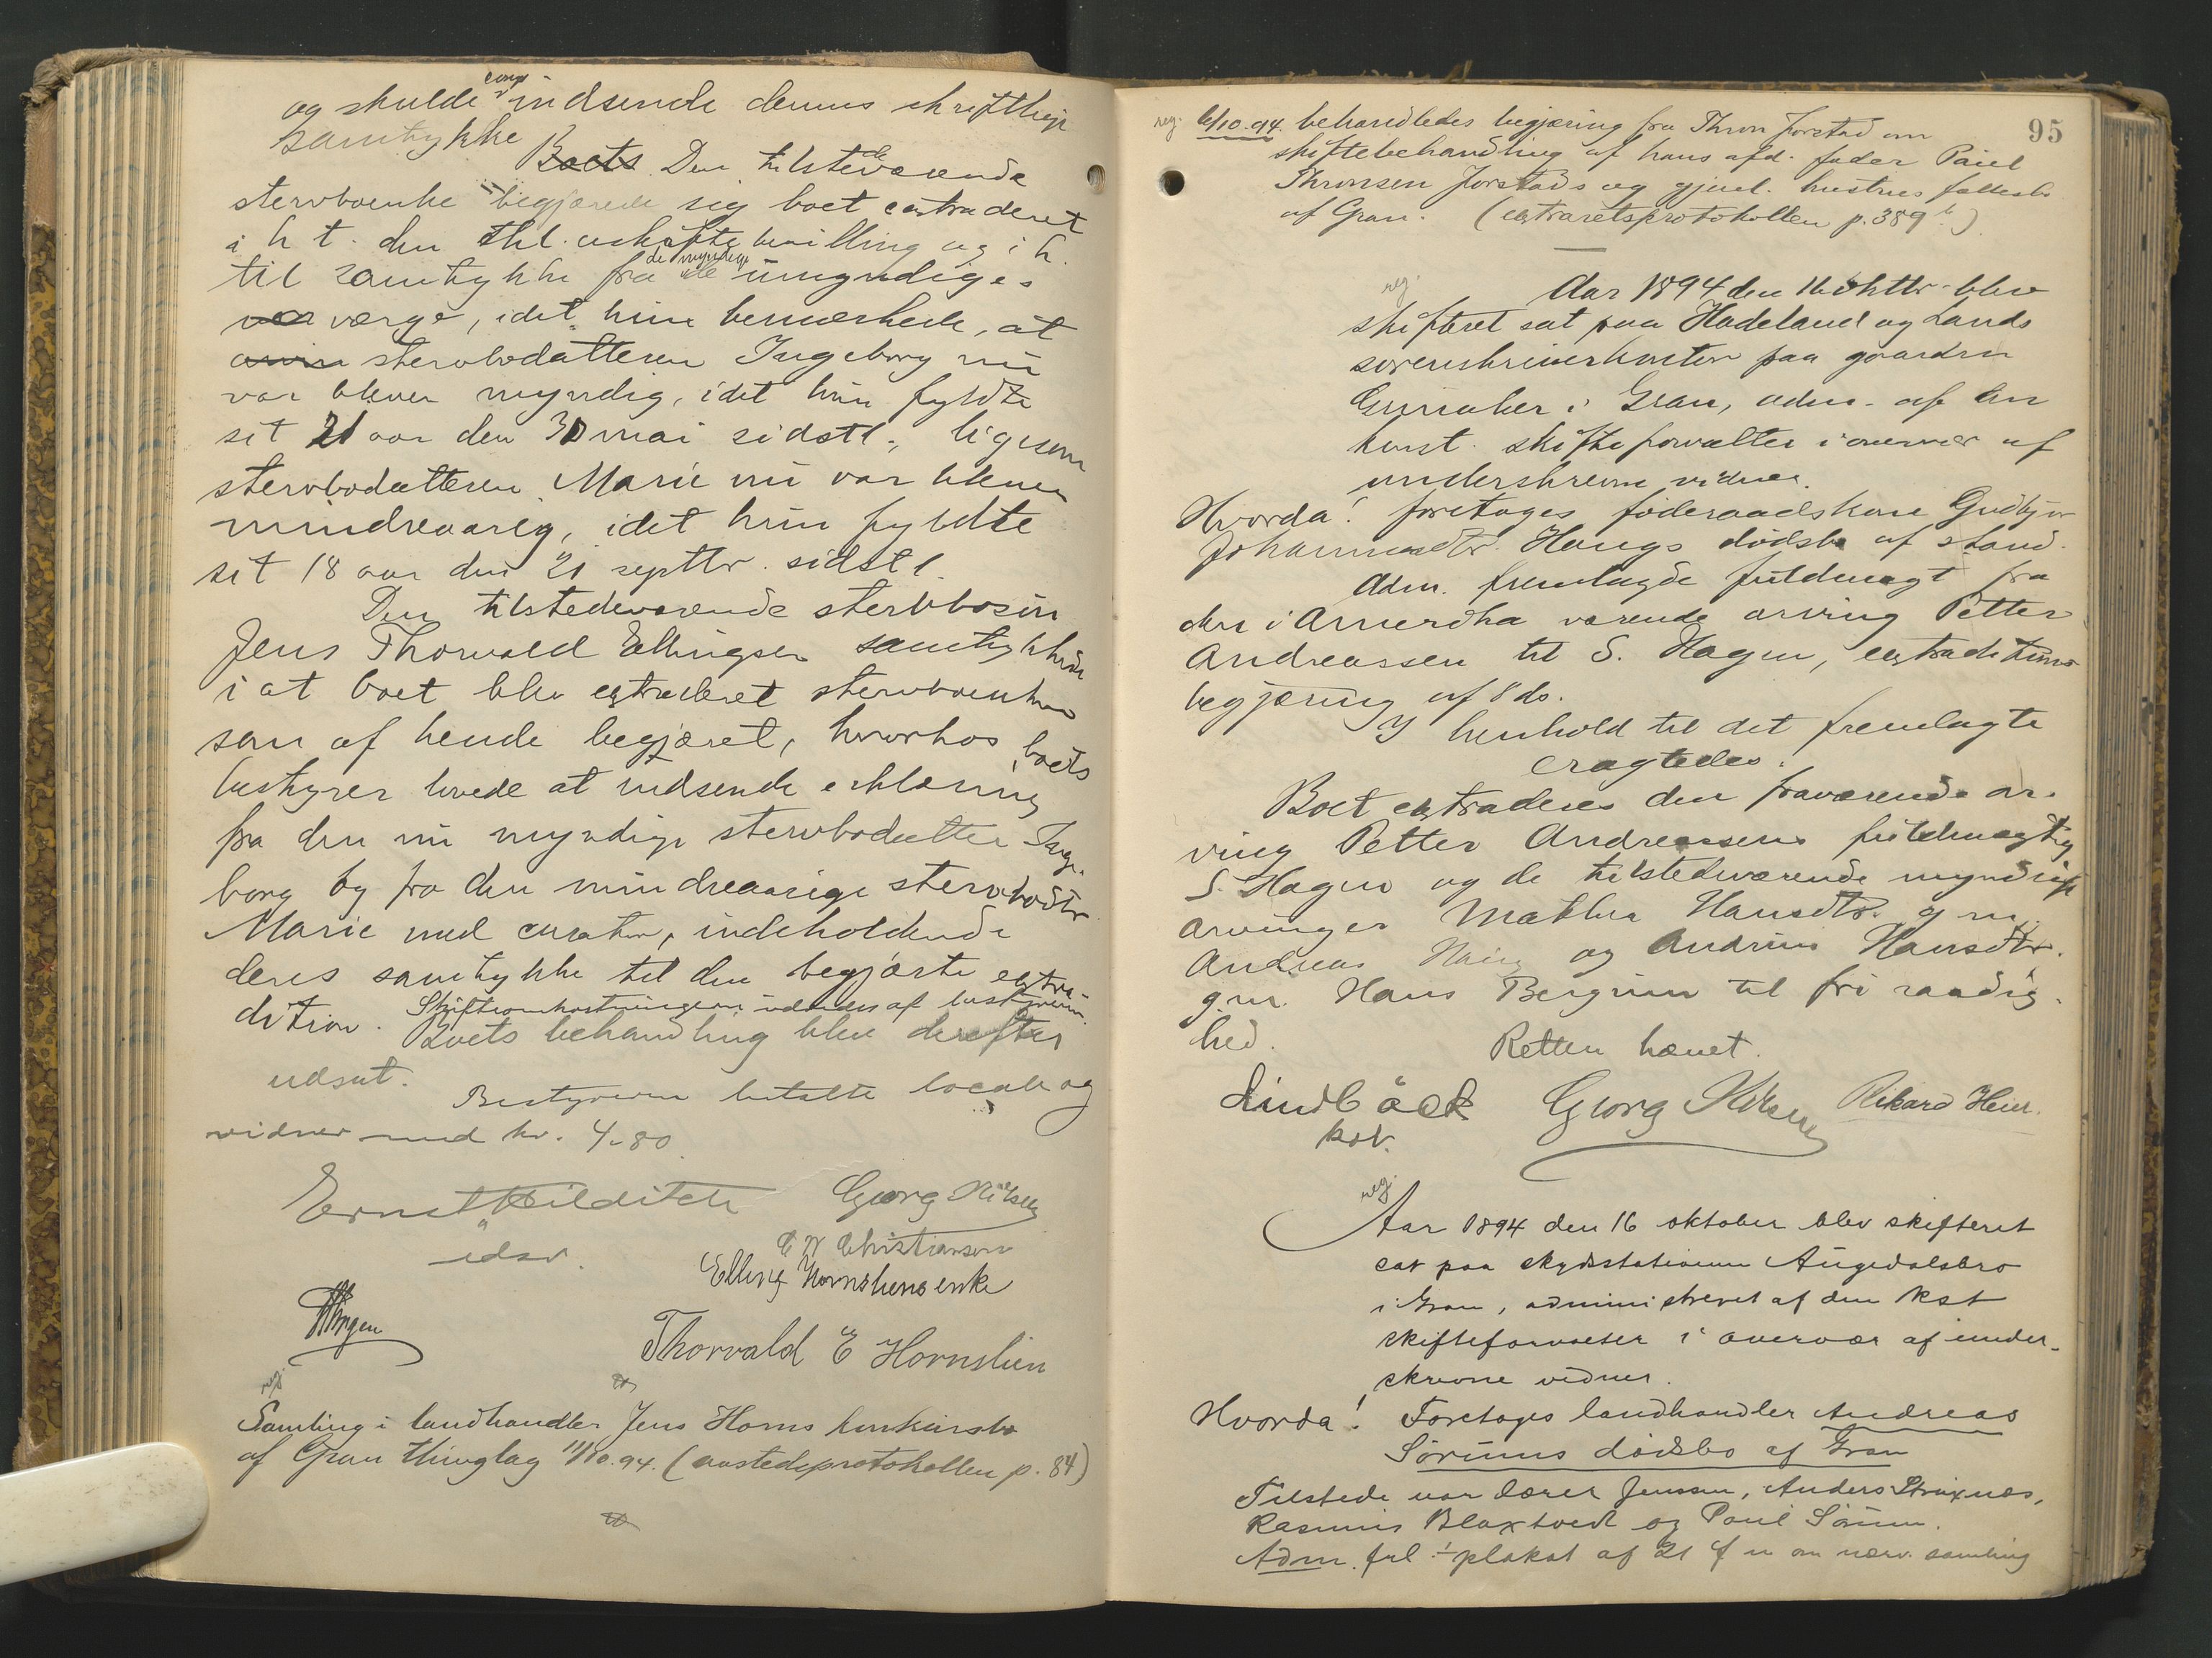 og skulde indsende dennes skriftlige
samtykke
Boets Den tilstedeværende
stervboenke begjærede sig boet extraderet
i h t. den thl. uskiftebevilling og i h.
til samtykke fra de myndige de umyndiges
værge, idet hun bemærkede, at
stervbodatteren Ingeborg nu
var bleven myndig, idet hun fyldte
sit 21 aar den 30 mai sidstl., ligesom
stervbodatteren Marie nu var bleven
mindreaarig, idet hun fyldte
sit 18 aar den 21 septbr. sidstl.
Den tilstedeværende stervbosøn
Jens Thorvald Ellingsen samtykkede
i at boet blev extraderet stervboenken
som af hende begjæret, hvorhos boets
bestyrer lovede at indsende erklæring
fra den nu myndige stervbodatter Inge-
borg og fra den mindreaarige stervbodtr
Marie med curator, indeholdende
deres samtykke til den begjærte extra-
dition. Skifteomkostningerne udredes af bestyreren.
Boets behandling blev derefter
udsat.
Bestyreren betalte locale og
vidner med kr. 4.80.
Ernst
Georg Nilsen
edsv.
Christiansen
Elling Hornsliens enke
Thorvald E Hornslien
reg.
Samling i landhandler Jens Horns konkursbo
af Gran thinglag 11/10.94. (aastedsprotokollen p. 84)
95
reg. 6/10.94. behandledes begjæring fra Thron Jorstad om
skiftebehandling af hans afd. fader Paul
Thronsen Jorstads og gjenl. hustrus fællesbo
af Gran. (extraretsprotokollen p. 389 b)
reg.
Aar 1894 den 16 oktbr. blev
skifteret sat paa Hadeland og Lands
sorenskriverkontor paa gaarden
Grinaker i Gran, adm. af den
konst. skifteforvalter i overvær af
underskrevne vidner.
Hvorda! foretoges føderaadskone Gudbjør
Johannesdtr. Haugs dødsbo af stand.
Adm. fremlagde fuldmagt fra
den i Amerika værende arving Petter
Andreassen til S. Hagen, extraditions-
begjæring af 8 ds.
I henhold til det fremlagte
eragtedes:
Boet extraderes den fraværende ar-
ving Petter Andreassens fuldmægtig
S. Hagen og de tilstedeværende myndige
arvinger Mathea Hansdtr. g. m.
Andreas Haug og Andrine Hansdtr.
g. m. Hans Bergum til fri raadig-
hed.
Retten hævet.
Lindbäck
kst.
Georg Nilsen
Rikard Heier.
reg.
Aar 1894 den 16 oktober blev skifteret
sat paa skydsstationen Augedalsbro
i Gran, administreret af den kst
skifteforvalter i overvær af under-
skrevne vidner.
Hvorda! Foretoges landhandler Andreas
Sørums dødsbo af Gran
Tilstede var lærer Jenssen, Anders Struxnæs,
Rasmus Blaxtvedt og Paul Sørum.
Adm. frl. plakat af 21 f m om nærv. samling